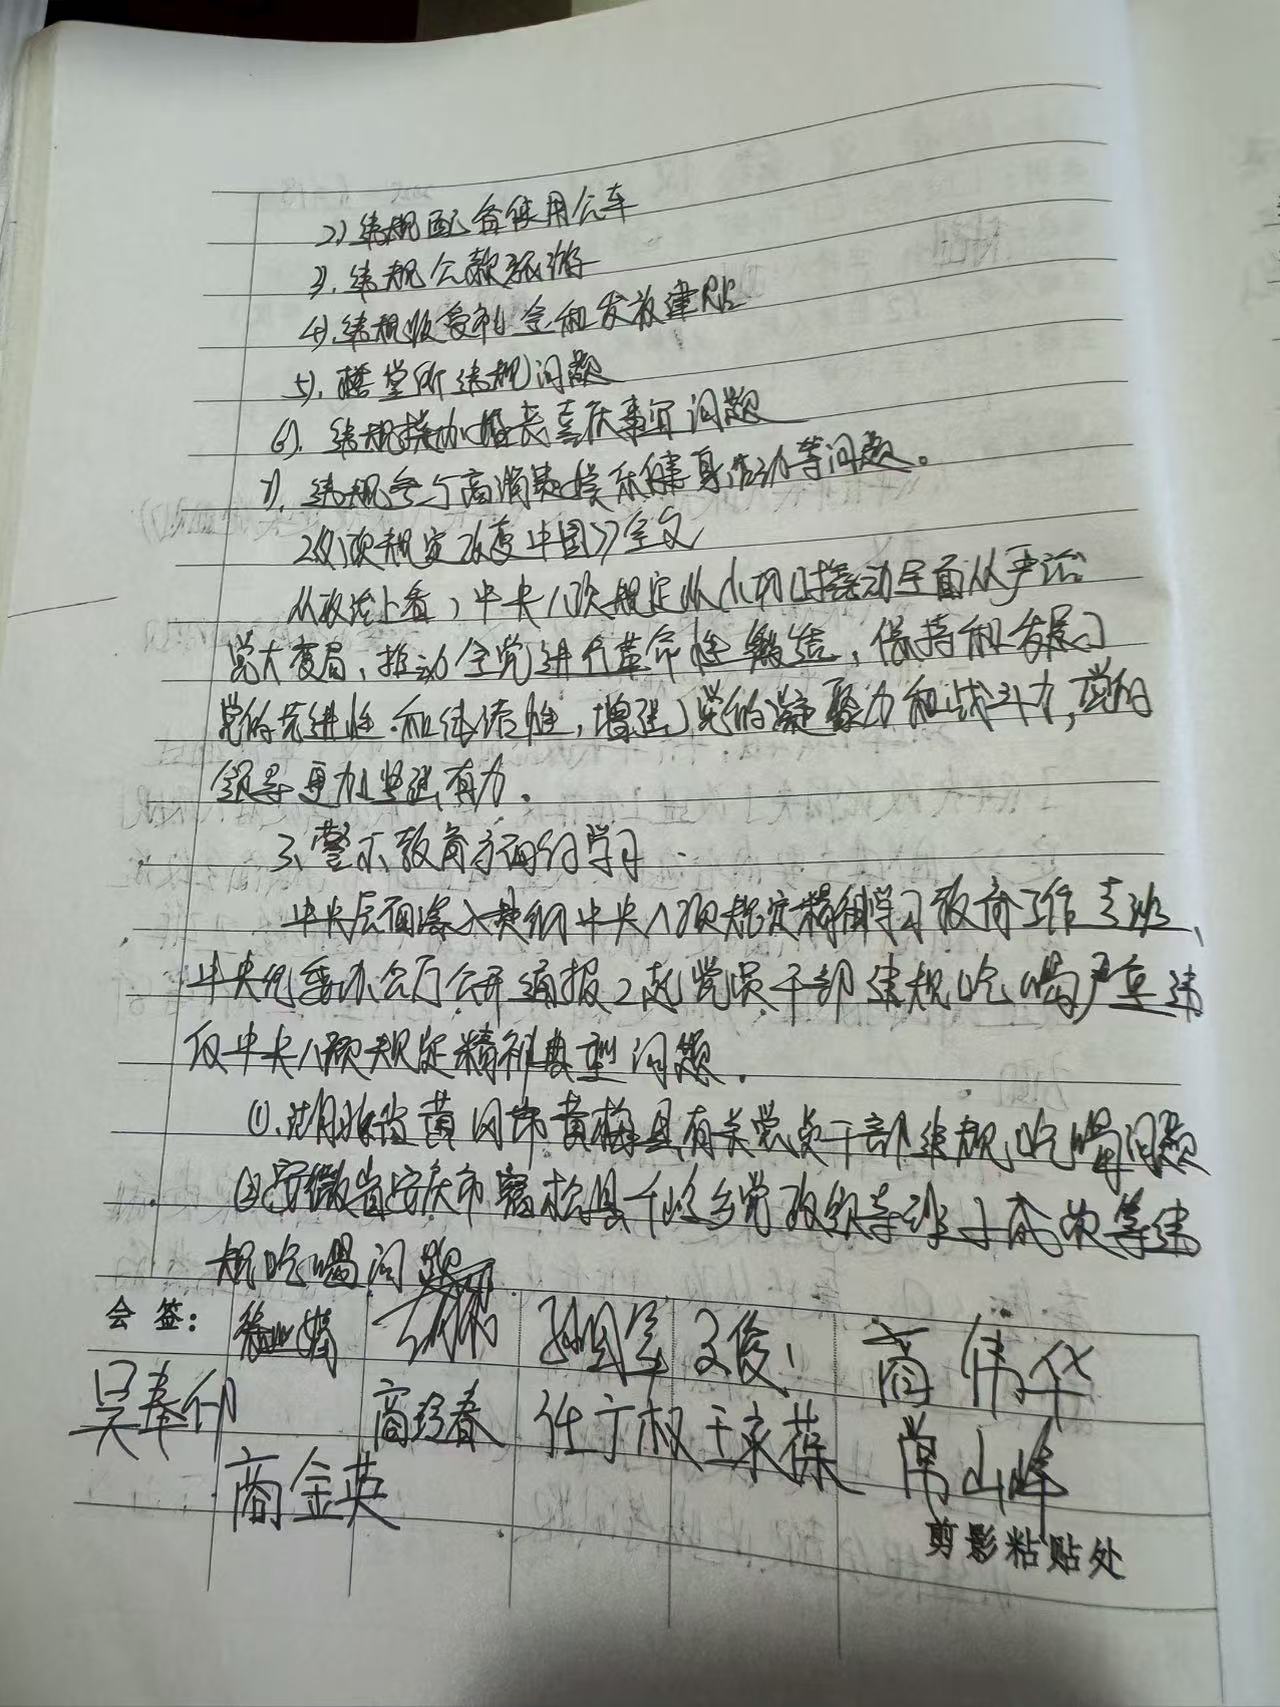 2) 违规配备使用公车
3). 违规公款旅游
4). 违规收受礼金和发放津贴
5). 楼堂所违规问题
6). 违规操办婚丧喜庆事宜问题
7). 违规参与高消费娱乐健身活动等问题。
2《八项规定改变中国》全文
从政治上看，中央八项规定从小切口撬动全面从严治
党大变局，推动全党进行革命性锻造，保持和发展了
党的先进性和纯洁性，增进了党的凝聚力和战斗力，党的
领导更加坚强有力。
3、警示教育方面的学习
中央层面深入贯彻中央八项规定精神学习教育工作专班、
中央纪委办公厅公开通报2起党员干部违规吃喝严重违
反中央八项规定精神典型问题.
①.湖北省黄冈市黄梅县有关党员干部违规吃喝问题
②安徽省安庆市宿松县千岭乡党政领导班子成员等违
规吃喝问题
会 签： 孙国军 文俊 商伟华
吴奉仙 商珍春 任广权 王家葆 常山峰
商金英
剪影粘贴处